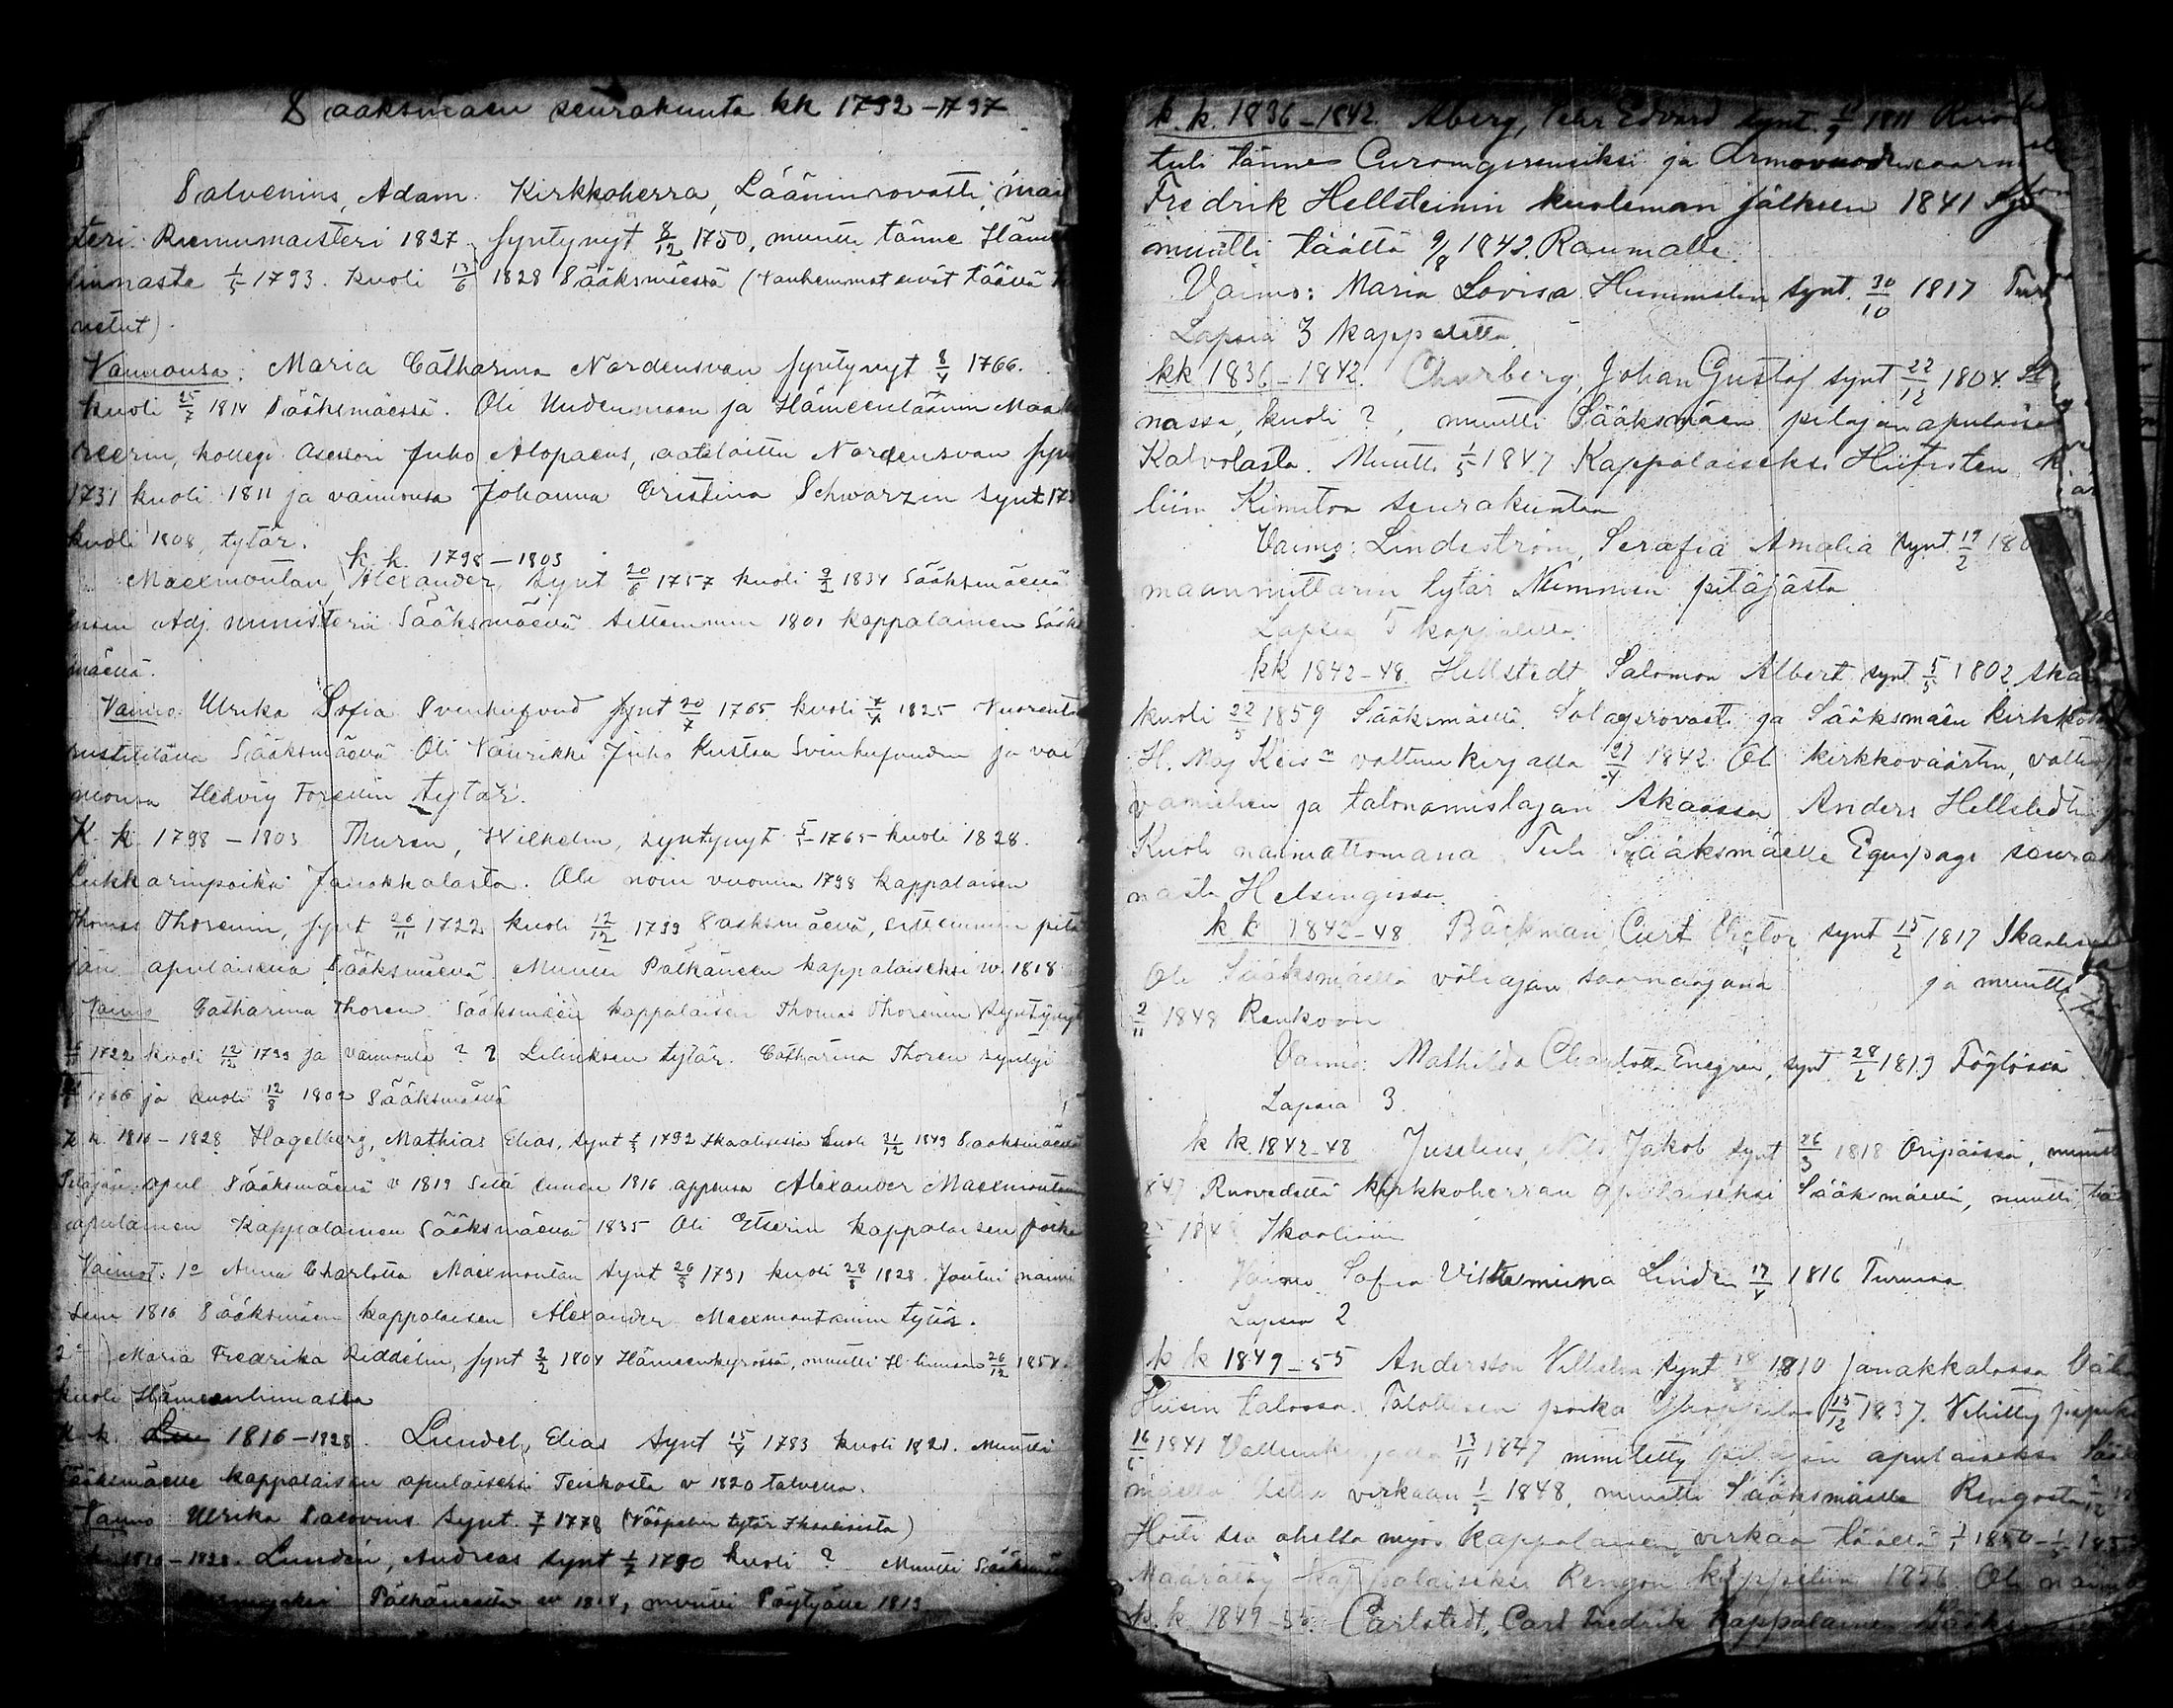 Sääksmäen seurakunta kk 1792-1797
Salvenius, Adam. Kirkkoherra, Lääninrovasti, mais
teri. Riemumaisteri 1827. syntynyt 8/12 1750, muutti tänne Hämeen
linnasta 1/5 1793. kuoli 13/6 1828 Sääksmäessä (Vanhemmat eivät täällä
Vaimonsa: Maria Catharina Nordensvan syntynyt 8/4 1766.
kuoli 25/7 1814 Sääksmäessä. Oli Uudenmaan ja Hämeenläänin Maa
kollegi asessori Juho Alopaeus, aateloittu Nordensvan syn
1731 kuoli 1811 ja vaimonsa Johanna Cristina Schwarzin synt 17
kuoli 1808, tytär.
k. k. 1798-1803
Maexmontan, Alexander, synt 20/6 1757 kuoli 9/2 1834 Sääksmäellä
Adj. ministerii Sääksmäellä sittemmin 1801 kappalainen Sääks
mäellä.
Vaimo Ulrika Sofia Svinhufvud synt 20/7 1765 kuoli 7/4 1825
Sääksmäellä Oli Vänrikki Juho Kustaa Svinhufvudin ja vai
monsa Hedvig Forellin tytär.
K. k. 1798-1803 Thuren, Wilhelm, syntynyt 5/5 1765 kuoli 1828.
Lukkarinpoika Janakkalasta. Oli noin vuonna 1798 kappalaisen
Thomas Thorenin, synt 26/11 1722 kuoli 12/12 1799 Sääksmäellä, sittemmin pitä
jän apulaisena Sääksmäellä. Muutti Pälkäneen kappalaiseksi w. 1818
Vaimo Catharina Thoren Sääksmäen kappalaisen Thomas Thorenin syntynyt
1722 kuoli 12/12 1799 ja vaimonsa ? ? Leliuksen tytär. Catharina Thoren syntyi
1766 ja kuoli 12/8 1802 Sääksmäellä
k. k. 1816-1828 Hagelberg, Mathias Elias, synt 1792 Ikaalisissa kuoli 21/12 1849 Sääksmäellä
Pitäjän apul Sääksmäellä v 1819 Sitä ennen 1816 appensa Alexander Maexmontanin
apulainen Kappalainen Sääksmäellä 1835 Oli Etserin kappalaisen poika
Vaimot: 1o Anna Charlotta Maexmontan synt 26/8 1791 kuoli 28/8 1828. Joutui naimi
seen 1816 Sääksmäen kappalaisen Alexander Maexmontanin tytär.
2o) Maria Fredrika Riddelin, synt 2/2 1804 Hämeenkyrössä, muutti H-linnaan 26/12 1854.
kuoli Hämeenlinnassa
k. k. 1816-1828. Lundel, Elias synt 15/4 1783 kuoli 1821. Muutti
Sääksmäelle kappalaisen apulaiseksi Teiskosta v 1820 talvella.
Vaimo Ulrika Salovius synt. 7/7 1778 (Vääpelin tytär Ikaalisista)
1816-1828. Lundén, Andreas synt 1/2 1790 kuoli ? Muutti Sääksmä
Pälkäneeltä w 1818, muutti Pöytyälle 1819
k. k. 1836-1842. Åberg, Pehr Edvard synt. 1811
tuli tänne ja Armovuodensaarn
Fredrik Hellsteinin kuoleman jälkeen 1841
muutti täältä 9/8 1842. Raumalle.
Vaimo: Maria Lovisa Hummelin synt. 30/10 1817
Lapsia 3 kappaletta.
kk 1836-1842. Churberg, Johan Gustaf synt 22/12 1804.
nassa, kuoli ?, muutti Sääksmäen pitäjän apulaise
Kalvolasta. Muutti 1/5 1847 Kappalaiseksi Hiitisten k.
liin Kimiton seurakuntaa
Vaimo: Lindeström, Serafia Amalia synt. 19/2 180
maanmittarin tytär Nummen pitäjästä
Lapsia 5 kappaletta
kk 1842-48. Hellstedt, Salomon Albert synt 5/5 1802 Akaa
kuoli 22/5 1859 Sääksmäellä. Sotaprovasti ja Sääksmäen kirkkoh
H. Maj Keis:n valtuuskirjalla 27/4 1842 Oli kirkkoväärtin, valtio
vamiehen ja talonomistajan Akaassa Anders Hellstedtin
Kuoli naimattomana. Tuli Sääksmäelle Equipage seura
nasta Helsingissä.
k k 1842-48 Bäckman, Curt Victor synt 15/2 1817 Ikaalisissa
Oli Sääksmäellä väliajan saarnaajana ja muutti
2/11 1848 Renkoon
Vaimo: Mathilda Charlotta Enegren, synt 28/2 1819 Föglössä
Lapsia 3.
k k. 1842-48 Juselius, Nils Jakob synt 26/3 1818 Oripäässä, muutti
1847 Ruovedeltä kirkkoherran apulaiseksi Sääksmäellä, muutti
184 Ikaalisiin
Vaimo Sofia Vilhelmiina Linden 17/4 1816 Turussa
Lapsia 2
k k 1849-55 Andersson Vilhelm synt 18 1810 Janakkalassa
Hiisin talossa. Talollisen poika Ylioppilas 15/12 1837. Vihitty papiksi
16/6 1841 Valtuuskirjalla 13/11 1847 nimitetty pitäjän apulaiseksi Sääks
mäellä astui virkaan 1/5 1848, muutti Sääksmäelle Rengosta
Hoiti sen ohella myös kappalaisen virkaa täällä 1/5 1850 - 1/5 185
Määrätty kappalaiseksi Rengon kappeliin 1856. Oli naima
k. k. 1849-55. Carlstedt, Carl Fredrik kappalainen Sääks